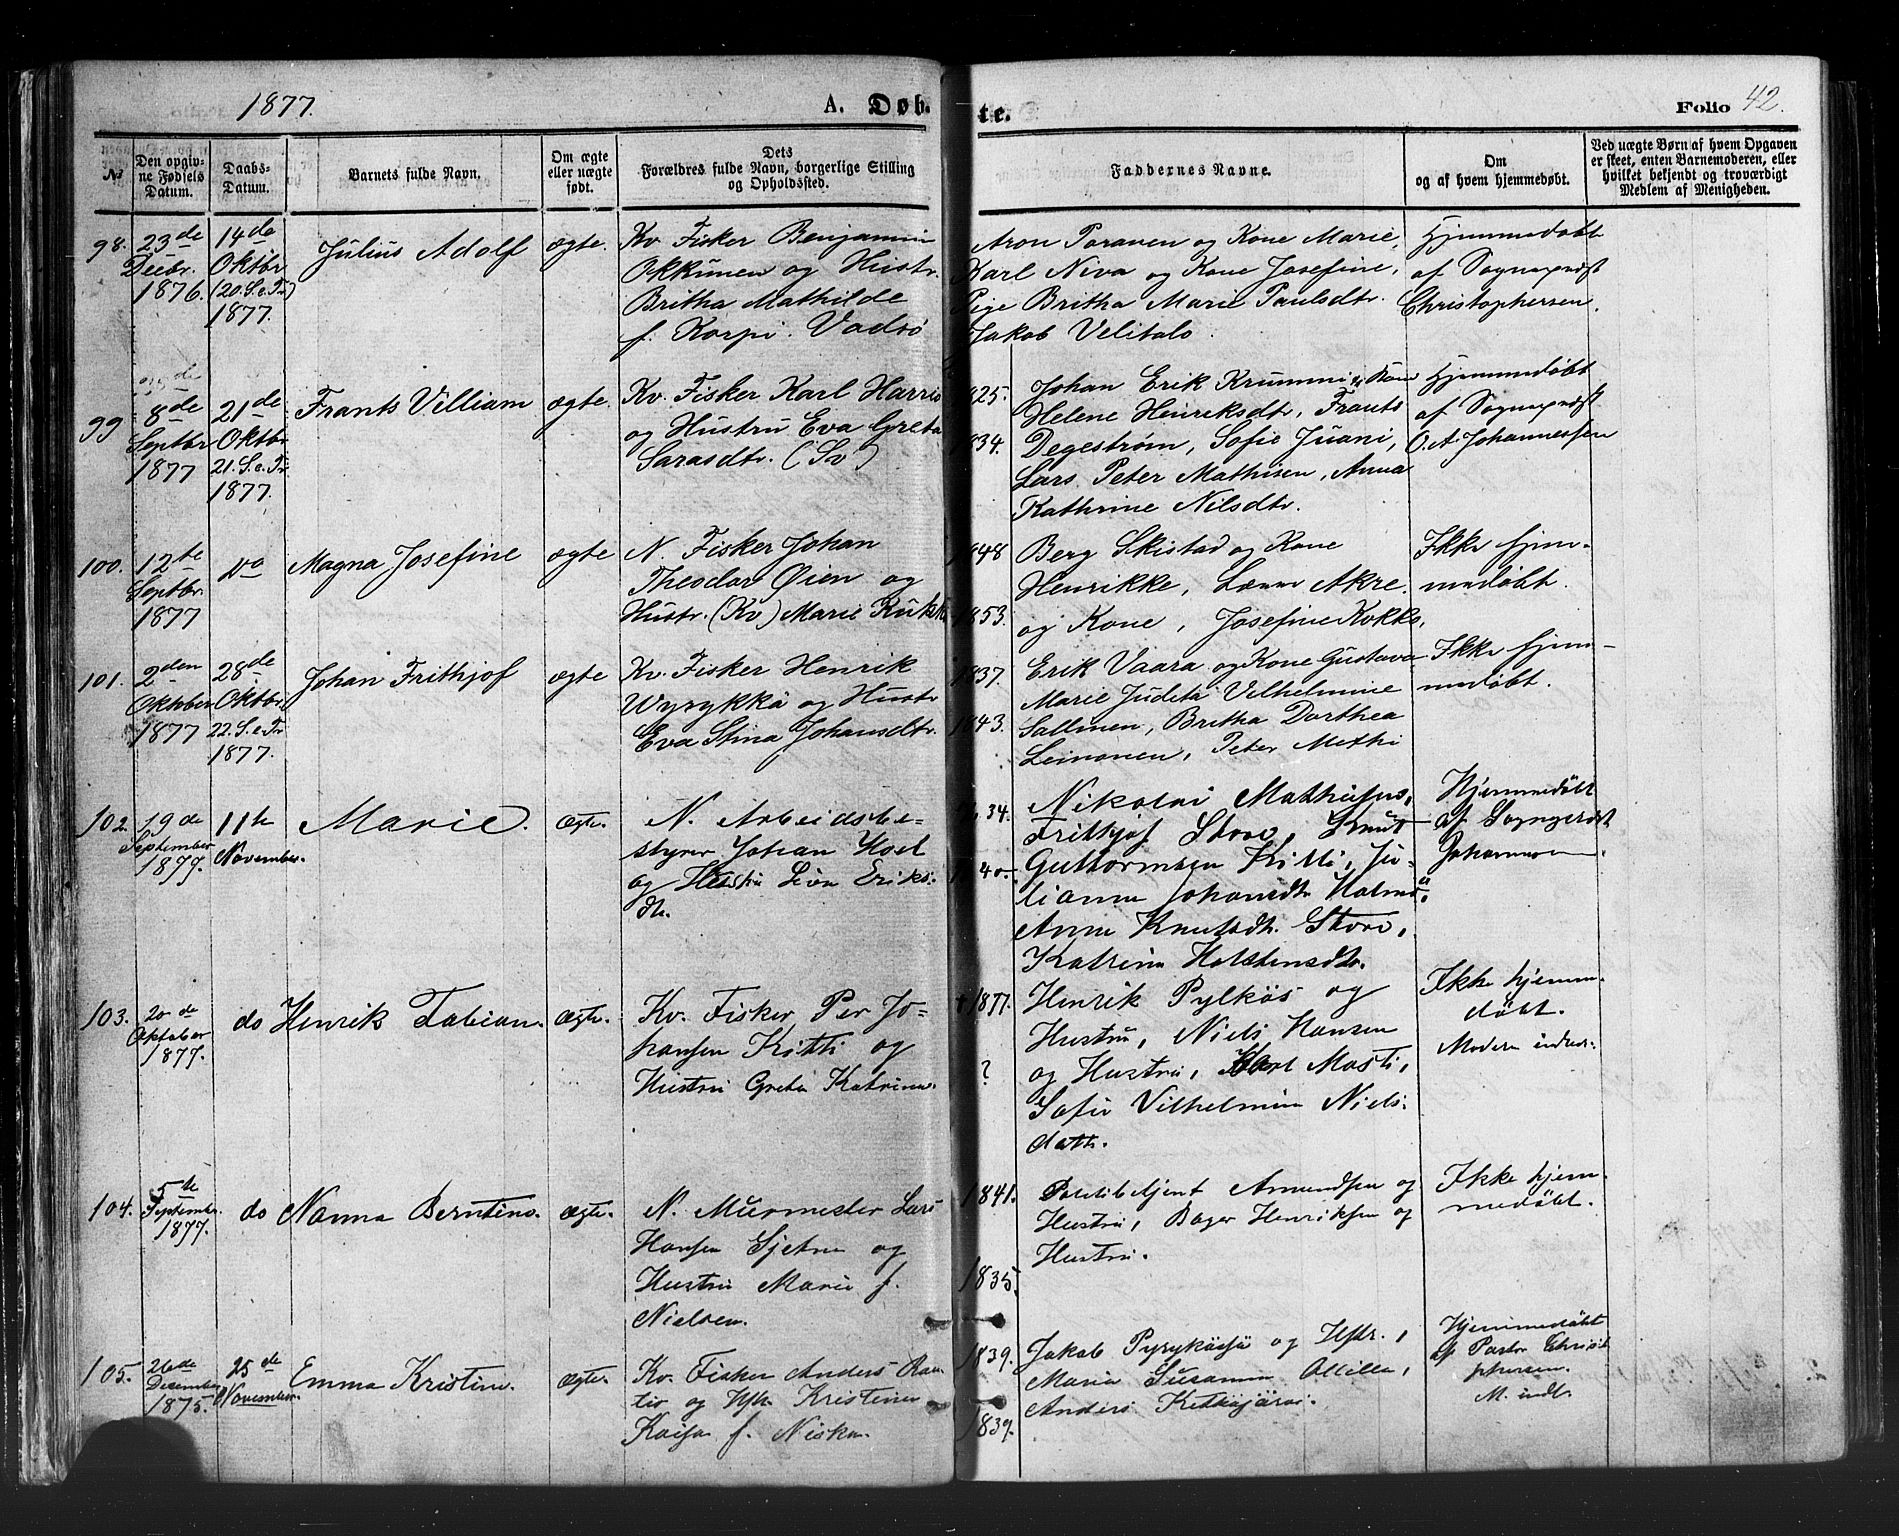 1877.
A. Døb-
te.
Folio 42.
No
Den opgiv-
ne Fødsels
Datum.
Daabs-
Datum.
Barnets fulde Navn.
Om ægte
eller uægte
født.
Dets
Forældres fulde Navn, borgerlige Stilling
og Opholdssted.
Faddernes Navne.
Om
og af hvem hjemmedøbt.
Ved uægte Børn af hvem Opgaven
er skeet, enten Barnemoderen, eller
hvilket bekjendt og troværdigt
Medlem af Menigheden.
98.
23de
Decbr.
1876.
14de
Oktbr
(20. S. e. Tr.)
1877.
Julius Adolf
ægte.
Kv. Fisker Benjamin
Okkunen og Hustr.
Britha Mathilde
f. Korpi. Vadsø
Aron Poraven og Kone Marie,
Karl Niva og Kone Josefine,
Pige Britha Marie Paulsdtr.
Jakob Velitalo
Hjemmedøbt
af Sognepræst
Christophersen.
99
8de
Septbr
1877
21de
Oktbr
21. S. e. Tr.
1877.
Frants Villiam
ægte.
Kv. Fisker Karl Harris
og Hustru Eva Greta
Sarasdtr. (Sv)
1825.
1834.
Johan Erik Krummi og Kone
Helene Henriksdtr, Frants
Degestrøm, Sofie Juani,
Lars Peter Mathisen, Anna
Kathrine Nilsdtr.
Hjemmedøbt
af Sognepræst
O. A. Johannessen
100.
12te
Septbr.
1877
do
Magna Josefine
ægte
N. Fisker Johan
Theodor Øien og
Hustr. (Kv) Marie
1848
1853.
Berg Skistad og Kone
Henrikke, Akre
og Kone, Josefine Kokko,
Ikke hjem-
medøbt.
101.
2den
Oktober
1877
28de
Oktbr.
22. S. e. Tr
1877.
Johan Frithjof
ægte
Kv. Fisker Henrik
Wyrykkä og Hustr
Eva Stina Johansdtr.
1837.
1843.
Erik Vaara og Kone Gustava
Marie Judeta Vilhelmine
Sallinen, Britha Dorthea
Leinonen, Peter Methi
Ikke hjem-
medøbt.
102.
19de
September
1877.
11te
November.
Marie.
ægte.
N. Arbeidsbe-
styrer Johan Hoel
og Hustru Eriks-
dtr.
1834.
1840.
Nikolai Mathisens,
Frithjof Store, Knut
Guttormsen Kitti, Ju-
lianna Johansdtr Holmø,
Anna Knutsdtr. Store,
Katrina Holstensdtr.
Hjemmedøbt
af Sognepræst
Johannessen.
103.
20de
Oktober
1877.
do
Henrik Fabian.
ægte.
Kv. Fisker Per Jo-
hansen Kitti og
Hustru Greta Katrina.
† 1877.
?
Henrik Pylkös og
Hustru, Niels Hansen
og Hustru, Karl Masti,
Sofie Vilhelmine Niels-
datt.
Ikke hjemme-
døbt.
Modern indtr.
104.
5te
September
1877.
do
Nanna Berntine.
ægte.
N. Murmester Lars
Hansen Sjetne og
Hustru Marie f.
Nielsen.
1841.
1835.
Politibetjent Amundsen og
Hustru, Bager Henriksen og
Hustru.
Ikke hjem-
medøbt.
105.
26de
December
1875.
25de
November
Emma Kristine.
ægte.
Kv. Fisker Anders Rau-
tio og Hstr. Kristina
Kaisa f. Niska.
1839.
1839.
Jakob Pyrykäsjä og Hstr.,
Maria Susanna Ollilla,
Anders Kitkijärvi.
Hjemmedøbt
af Pastor Christo-
phersen.
M. indl.